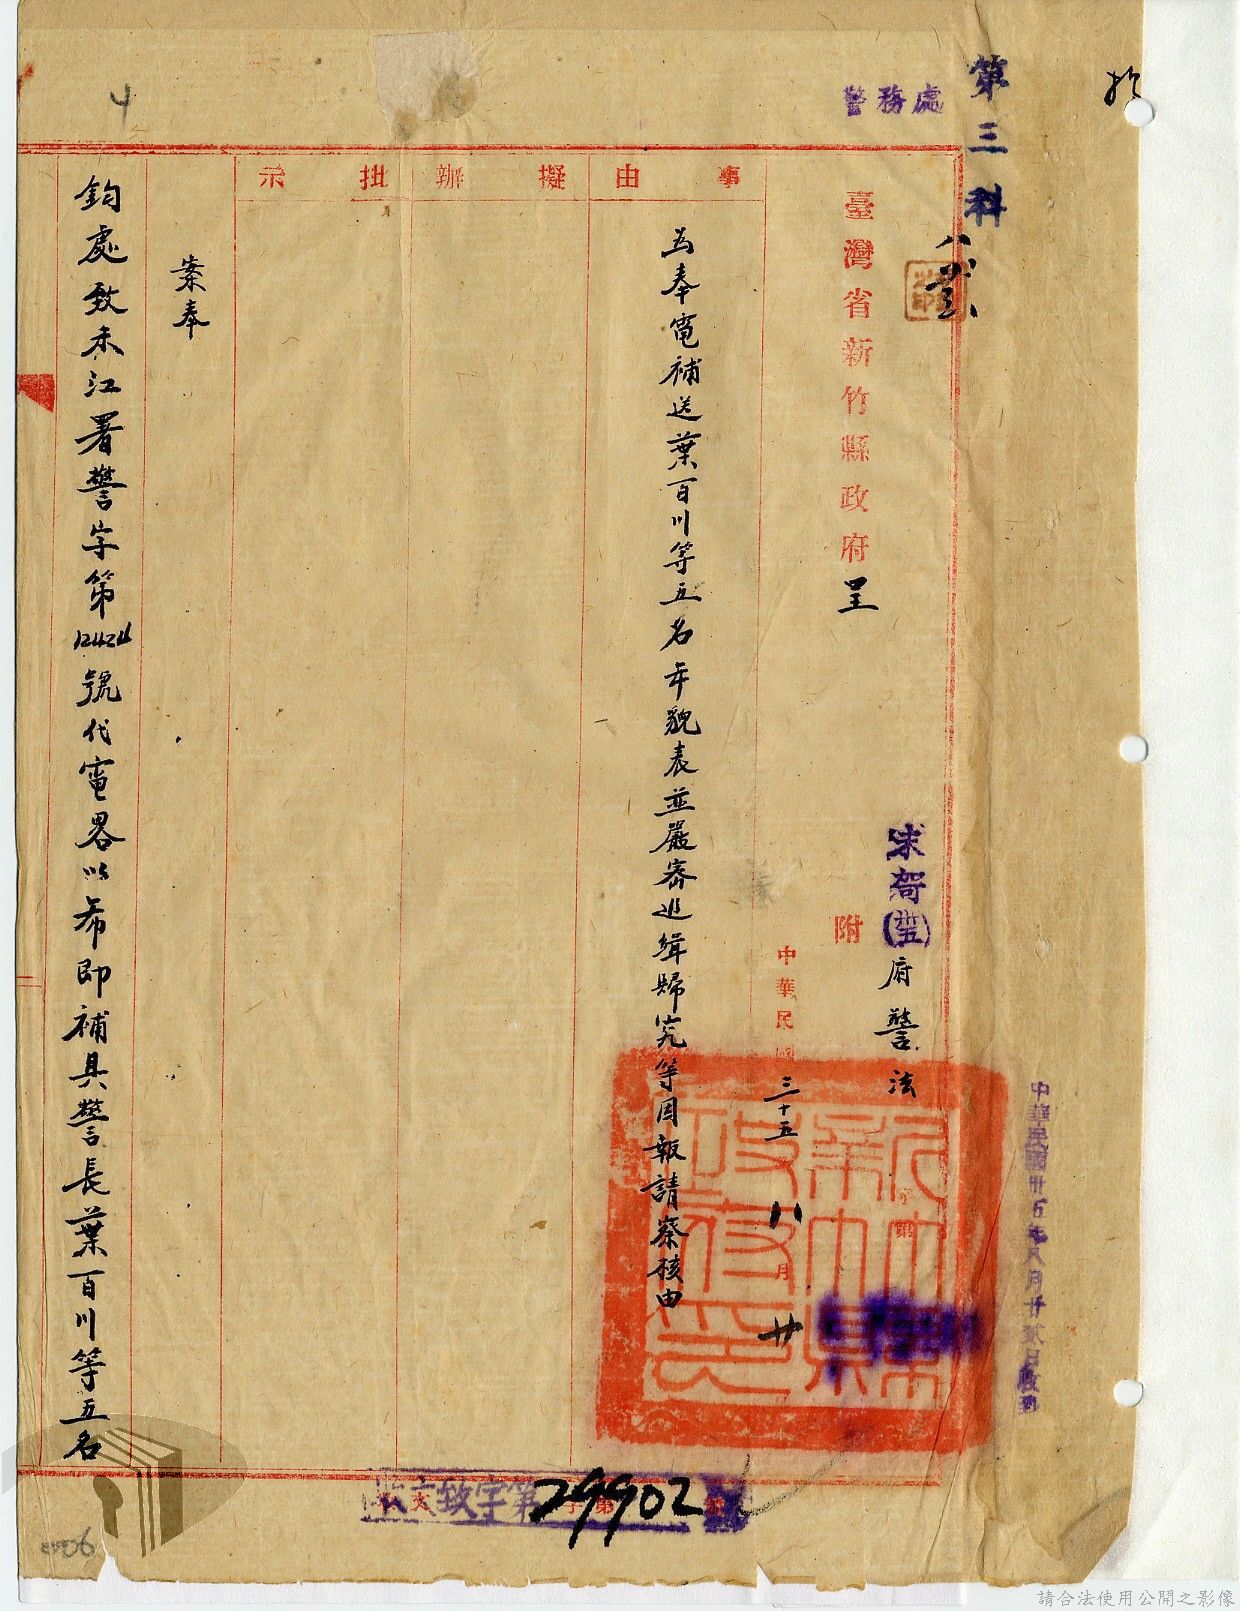 第三科
警務處
臺灣省新竹縣政府呈
府警法
附
中華民國三十五
八月廿
中華民國卅五年八月廿貳日收到
事由
擬辦
批示
為奉電補送葉百川等五名年貌表並嚴密巡緝歸究等因報請察核由
案奉
鈞處致未江署警字第12424號代電畧以希即補具警長葉百川等五名
收文致字第29902號
4
請合法使用公開之影像